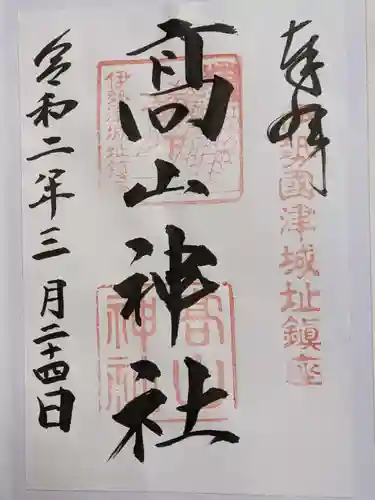 奉拝
勢國津城址鎮座
高山神社
高山神社
令和二年三月二十四日